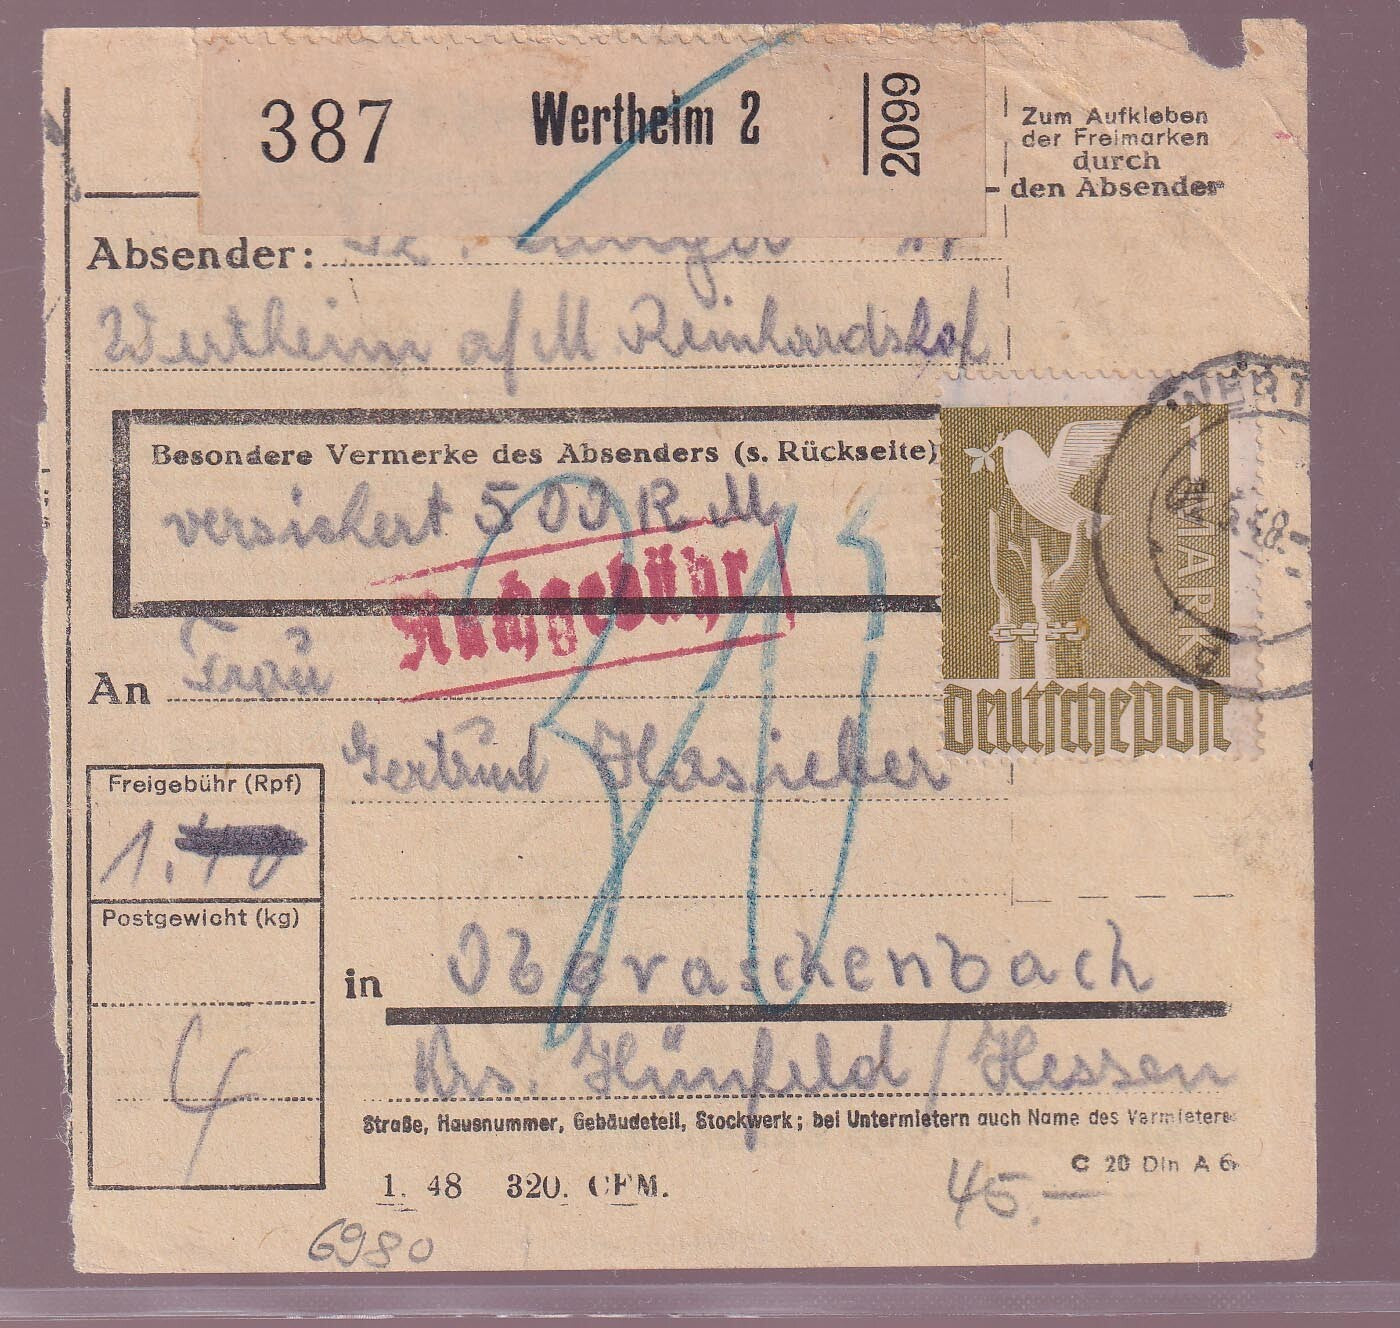 387 Wertheim 2 2099
Zum Aufkleben
der Freimarken
durch
den Absender
Absender:
Wertheim a/M Reinhardshof
Besondere Vermerke des Absenders (s. Rückseite)
versichert 500 R M
Nachgebühr
1 MARK
Deutsche Post
WERT
An Frau
Gertrud Hasieber
Freigebühr (Rpf)
1.40
Postgewicht (kg)
4
in Oberaschenbach
Krs. Hünfeld / Hessen
Straße, Hausnummer, Gebäudeteil, Stockwerk; bei Untermietern auch Name des Vermieters
C 20 Din A 6
1. 48 320. CFM.
45.—
6980